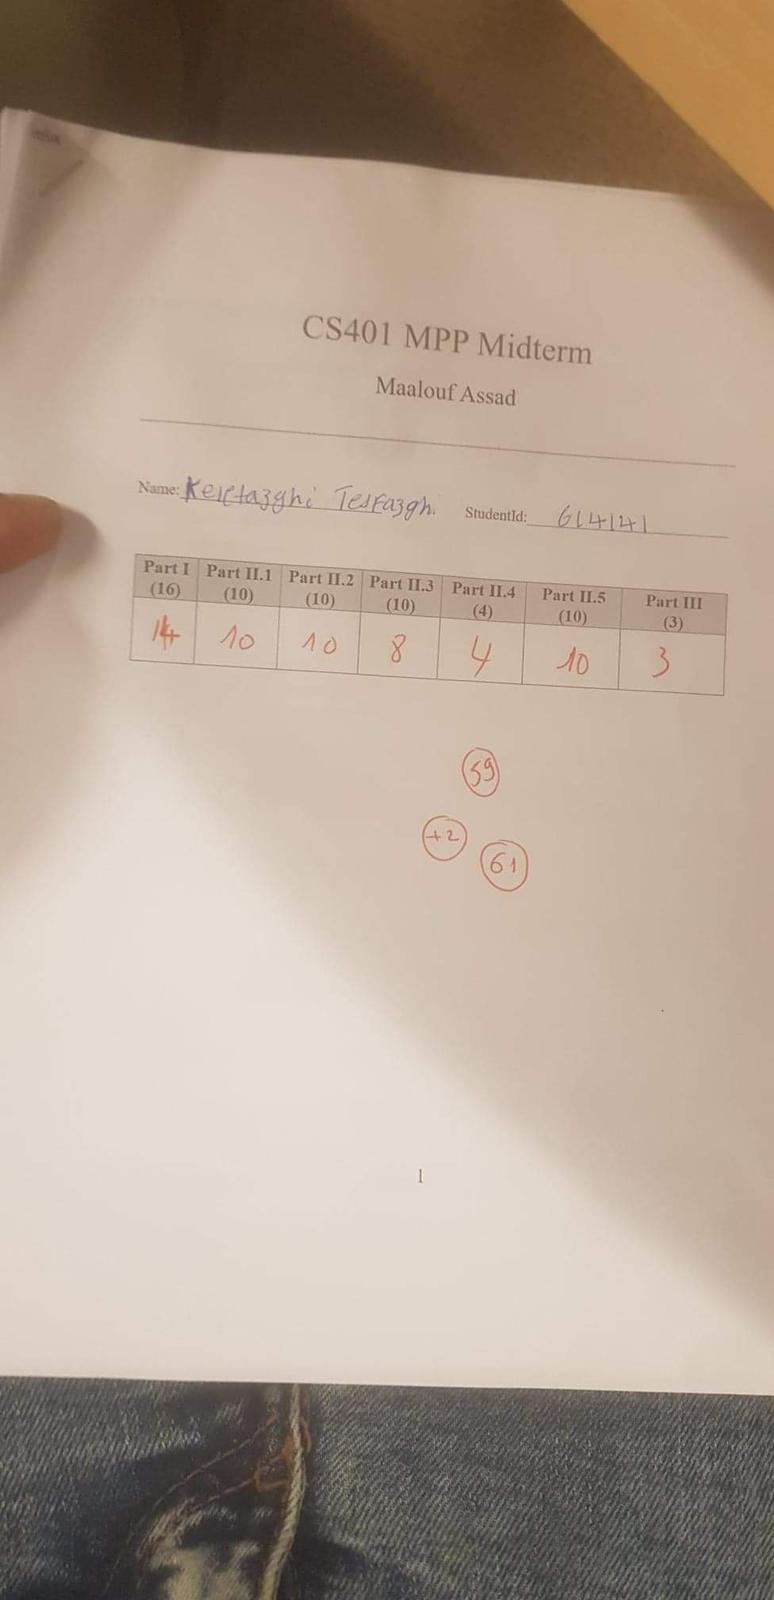 CS401 MPP Midterm
Maalouf Assad
Name: Kesetazghi Tesfazghi StudentId: 614141
Part I (16) Part II.1 (10) Part II.2 (10) Part II.3 (10) Part II.4 (4) Part II.5 (10) Part III (3)
14 10 10 8 4 10 3
59
+2
61
1